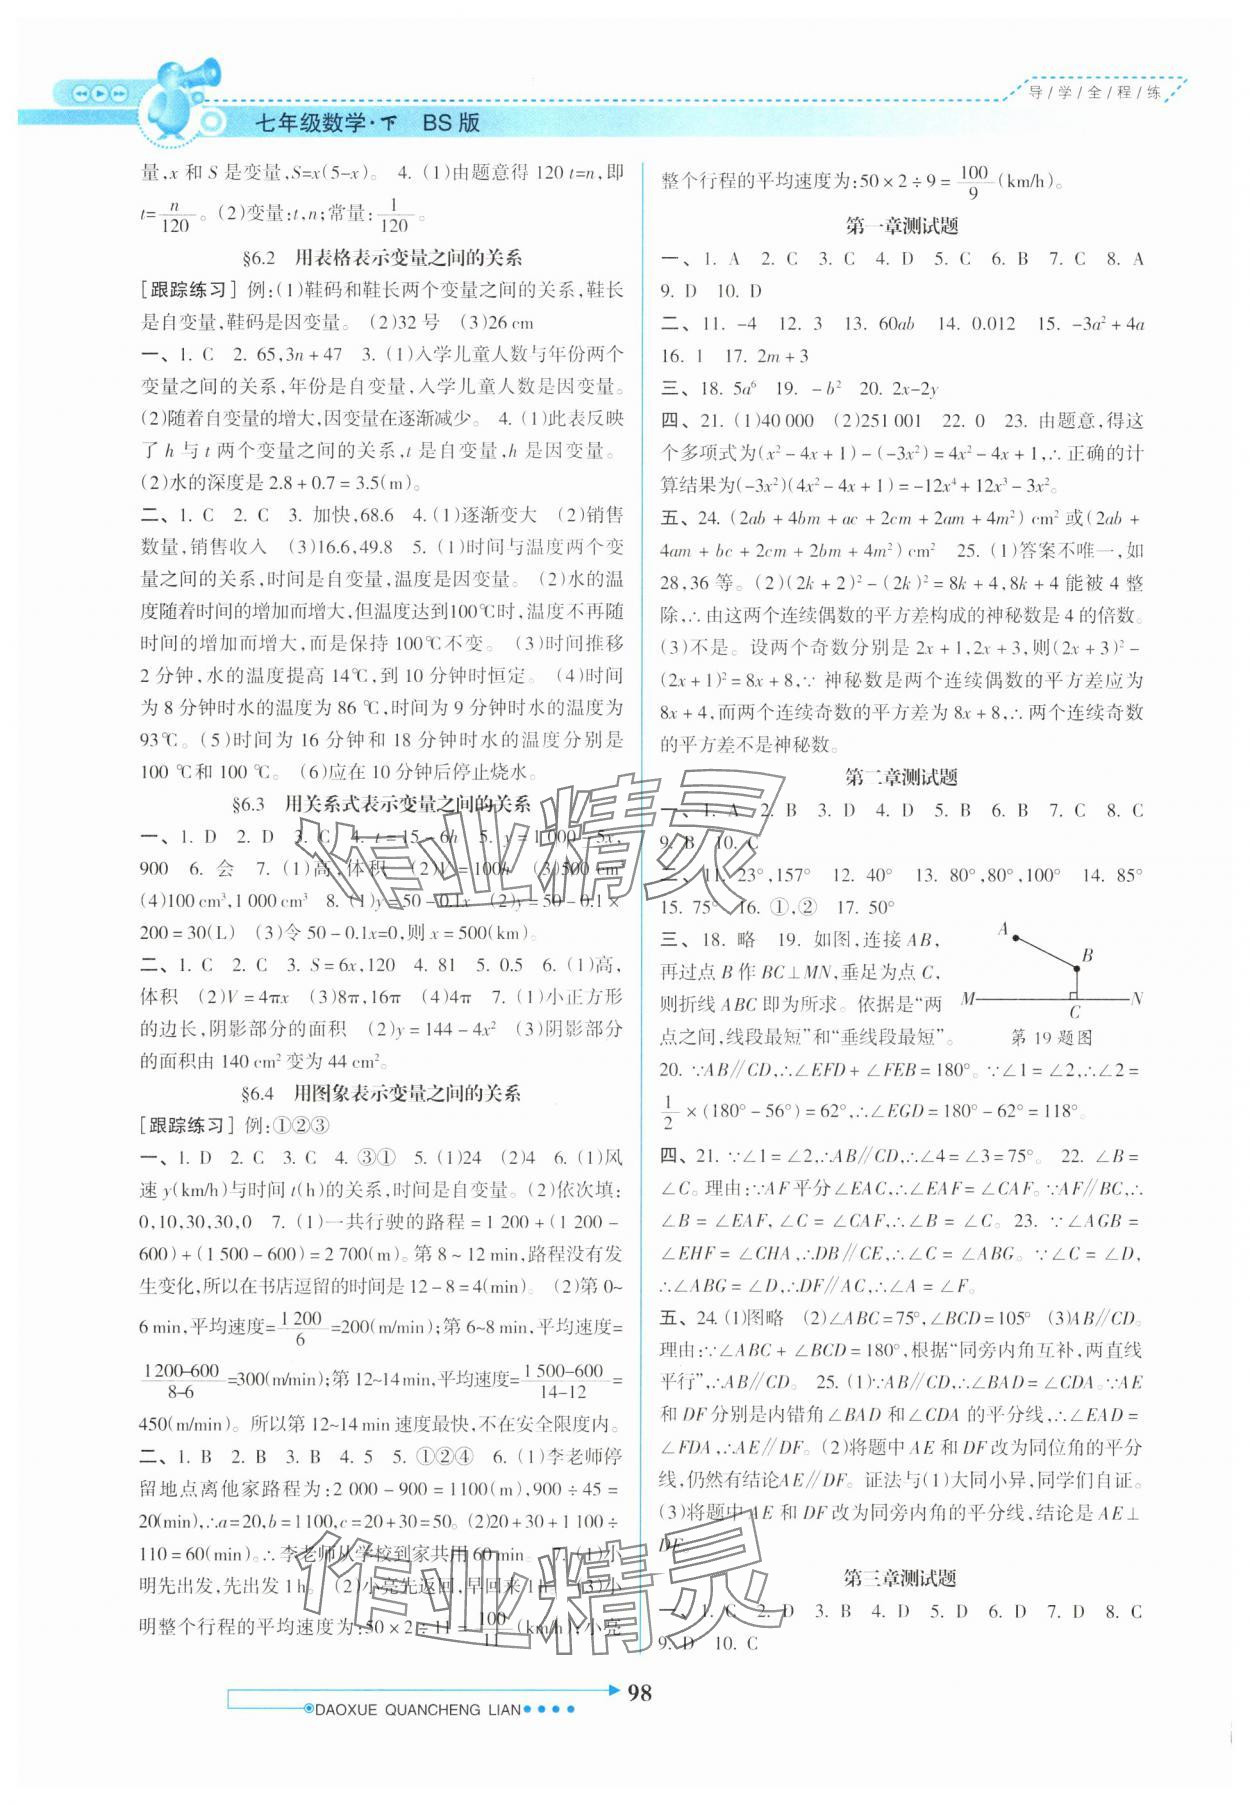 导/学/全/程/练
七年级数学·下 BS版
量,x 和 S 是变量,S=x(5-x)。 4. (1)由题意得 120 t=n,即
t=n/120。(2)变量:t,n;常量:1/120。
§6.2 用表格表示变量之间的关系
[跟踪练习] 例:(1)鞋码和鞋长两个变量之间的关系,鞋长
是自变量,鞋码是因变量。 (2)32 号 (3)26 cm
一、1. C 2. 65,3n+47 3. (1)入学儿童人数与年份两个
变量之间的关系,年份是自变量,入学儿童人数是因变量。
(2)随着自变量的增大,因变量在逐渐减少。 4. (1)此表反映
了 h 与 t 两个变量之间的关系,t 是自变量,h 是因变量。
(2)水的深度是 2.8+0.7=3.5(m)。
二、1. C 2. C 3. 加快,68.6 4. (1)逐渐变大 (2)销售
数量,销售收入 (3)16.6,49.8 5. (1)时间与温度两个变
量之间的关系,时间是自变量,温度是因变量。 (2)水的温
度随着时间的增加而增大,但温度达到100℃时,温度不再随
时间的增加而增大,而是保持 100℃不变。 (3)时间推移
2 分钟,水的温度提高 14℃,到 10 分钟时恒定。 (4)时间
为 8 分钟时水的温度为 86 ℃,时间为 9 分钟时水的温度为
93℃。(5)时间为 16 分钟和 18 分钟时水的温度分别是
100 ℃和 100 ℃。 (6)应在 10 分钟后停止烧水。
§6.3 用关系式表示变量之间的关系
一、1. D 2. D 3. C 4. t=15-6h 5. y=1 000-5x,
900 6. 会 7. (1)高,体积 (2)V=100h (3)500 cm³
(4)100 cm³,1 000 cm³ 8. (1)y=50-0.1x (2)y=50-0.1×
200=30(L) (3)令 50-0.1x=0,则 x=500(km)。
二、1. C 2. C 3. S=6x,120 4. 81 5. 0.5 6. (1)高,
体积 (2)V=4πx (3)8π,16π (4)4π 7. (1)小正方形
的边长,阴影部分的面积 (2)y=144-4x² (3)阴影部分
的面积由 140 cm² 变为 44 cm²。
§6.4 用图象表示变量之间的关系
[跟踪练习] 例:①②③
一、1. D 2. C 3. C 4. ③① 5. (1)24 (2)4 6. (1)风
速 y(km/h)与时间 t(h)的关系,时间是自变量。(2)依次填:
0,10,30,30,0 7. (1)一共行驶的路程=1 200+(1 200-
600)+(1 500-600)=2 700(m)。第 8~12 min,路程没有发
生变化,所以在书店逗留的时间是 12-8=4(min)。 (2)第 0~
6 min,平均速度=1 200/6=200(m/min);第 6~8 min,平均速度=
1200-600/8-6=300(m/min);第 12~14 min,平均速度=1 500-600/14-12=
450(m/min)。所以第 12~14 min 速度最快,不在安全限度内。
二、1. B 2. B 3. B 4. 5 5. ①②④ 6. (1)李老师停
留地点离他家路程为:2 000-900=1100(m),900÷45=
20(min),∴a=20,b=1100,c=20+30=50。(2)20+30+1 100÷
110=60(min)。∴李老师从学校到家共用 60 min。 7. (1)小
明先出发,先出发 1 h。 (2)小亮先返回,早回来 1 h。 (3)小
明整个行程的平均速度为:50×2÷11=100/11(km/h);小亮
整个行程的平均速度为:50×2÷9=100/9(km/h)。
第一章测试题
一、1. A 2. C 3. C 4. D 5. C 6. B 7. C 8. A
9. D 10. D
二、11. -4 12. 3 13. 60ab 14. 0.012 15. -3a²+4a
16. 1 17. 2m+3
三、18. 5a⁶ 19. -b² 20. 2x-2y
四、21. (1)40 000 (2)251 001 22. 0 23. 由题意,得这
个多项式为(x²-4x+1)-(-3x²)=4x²-4x+1,∴正确的计
算结果为(-3x²)(4x²-4x+1)=-12x⁴+12x³-3x²。
五、24. (2ab+4bm+ac+2cm+2am+4m²) cm² 或(2ab+
4am+bc+2cm+2bm+4m²) cm² 25. (1)答案不唯一,如
28,36 等。(2)(2k+2)²-(2k)²=8k+4,8k+4 能被 4 整
除,∴由这两个连续偶数的平方差构成的神秘数是 4 的倍数。
(3)不是。设两个奇数分别是 2x+1,2x+3,则(2x+3)²-
(2x+1)²=8x+8,∵神秘数是两个连续偶数的平方差应为
8x+4,而两个连续奇数的平方差为 8x+8,∴两个连续奇数
的平方差不是神秘数。
第二章测试题
一、1. A 2. B 3. D 4. D 5. B 6. B 7. C 8. C
9. B 10. C
二、11. 23°,157° 12. 40° 13. 80°,80°,100° 14. 85°
15. 75° 16. ①,② 17. 50°
三、18. 略 19. 如图,连接 AB,
再过点 B 作 BC⊥MN,垂足为点 C,
则折线 ABC 即为所求。依据是“两
点之间,线段最短”和“垂线段最短”。
A
B
M
N
C
第 19 题图
20. ∵AB∥CD,∴∠EFD+∠FEB=180°。∵∠1=∠2,∴∠2=
1/2×(180°-56°)=62°,∴∠EGD=180°-62°=118°。
四、21. ∵∠1=∠2,∴AB∥CD,∴∠4=∠3=75°。 22. ∠B=
∠C。理由:∵AF平分∠EAC,∴∠EAF=∠CAF。∵AF∥BC,∴
∠B=∠EAF,∠C=∠CAF,∴∠B=∠C。 23. ∵∠AGB=
∠EHF=∠CHA,∴DB∥CE,∴∠C=∠ABG。∵∠C=∠D,
∴∠ABG=∠D,∴DF∥AC,∴∠A=∠F。
五、24. (1)图略 (2)∠ABC=75°,∠BCD=105° (3)AB∥CD。
理由:∵∠ABC+∠BCD=180°,根据“同旁内角互补,两直线
平行”,∴AB∥CD。 25. (1)∵AB∥CD,∴∠BAD=∠CDA。∵AE
和 DF 分别是内错角∠BAD 和∠CDA 的平分线,∴∠EAD=
∠FDA,∴AE∥DF。(2)将题中 AE 和 DF 改为同位角的平分
线,仍然有结论AE∥DF。 证法与(1)大同小异,同学们自证。
(3)将题中 AE 和 DF 改为同旁内角的平分线,结论是 AE⊥
DF。
第三章测试题
一、1. C 2. D 3. B 4. D 5. D 6. D 7. D 8. C
9. D 10. C
98
DAOXUE QUANCHENG LIAN
作业精灵
作业精灵